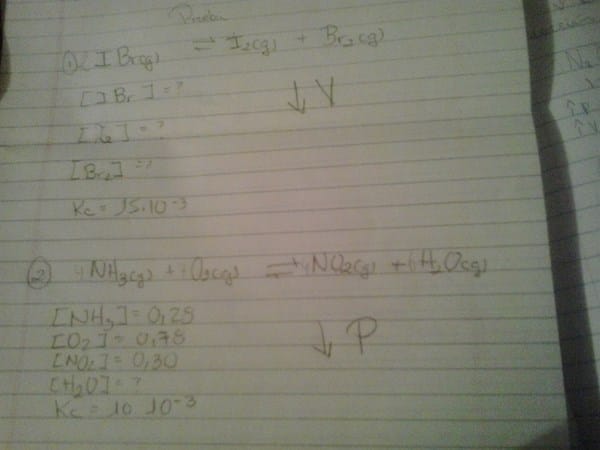 Prueba
① 2 I Br(g) ⇌ I2(g) + Br2(g)
[I Br] = ?
↓ V
[I2] = ?
[Br2] = ?
Kc = 15.10-3
② 4NH3(g) + 7O2(g) ⇌ 4NO2(g) + 6H2O(g)
[NH3] = 0,25
[O2] = 0,75
↓ P
[NO2] = 0,30
[H2O] = ?
Kc = 10 10-3
N2
↑P
↑V